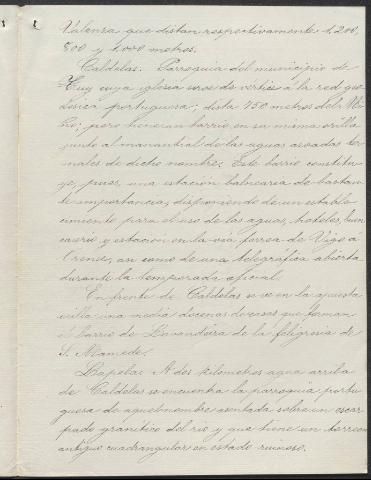 Valensa que distan respectivamente 1.200,
800 y 1.000 metros.
Caldelas. Parroquia del municipio de
Tuy cuya iglesia sirve de vertice á la red geo
désica portuguesa; dista 750 metros del Mi
ño; pero tiene un barrio en su misma orilla
junto al manantial de las aguas azoadas ter
males de dicho nombre. Este barrio constitu
ye, pues, una estación balnearia de bastan
te importancia, disponiendo de un estable
cimiento para el uso de las aguas, hoteles, buen
caserio y estación en la via ferrea de Vigo á
Orense, asi como de una telegráfica abierta
durante la temporada oficial.
En frente de Caldelas se ve en la opuesta
orilla una media docena de casas que forman
el barrio de Lavandeira de la feligresia de
S. Mamede.
Lapela. A dos kilometros agua arriba
de Caldelas se encuentra la parroquia portu
guesa de aquel nombre asentada sobre un escar
pado granítico del rio y que tiene un torreon
antiguo cuadrangular en estado ruinoso.